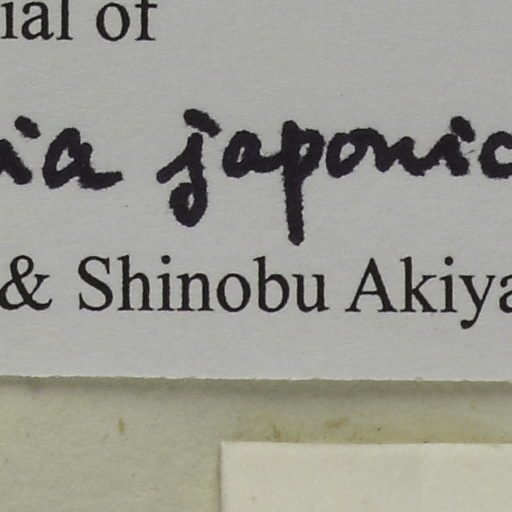 ial of
ia japonic
& Shinobu Akiya